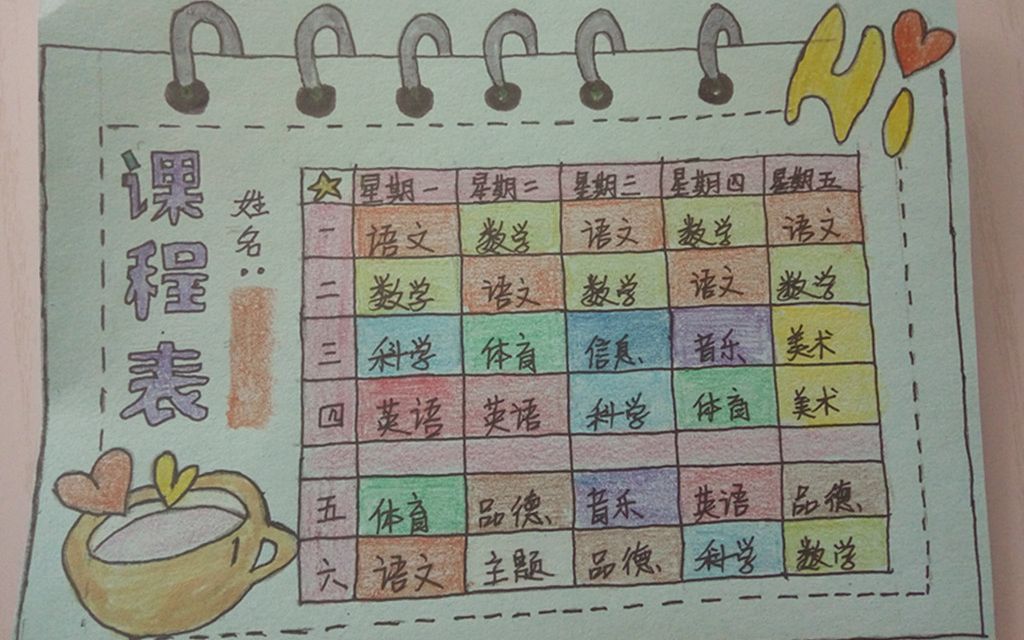 Hi
课程表
姓名:
星期一 星期二 星期三 星期四 星期五
一 语文 数学 语文 数学 语文
二 数学 语文 数学 语文 数学
三 科学 体育 信息 音乐 美术
四 英语 英语 科学 体育 美术
五 体育 品德 音乐 英语 品德
六 语文 主题 品德 科学 数学